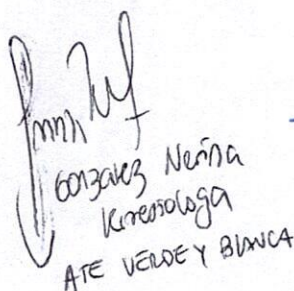 Gonzalez Nerina
Kinesiologa
ATE VERDE Y BLANCA